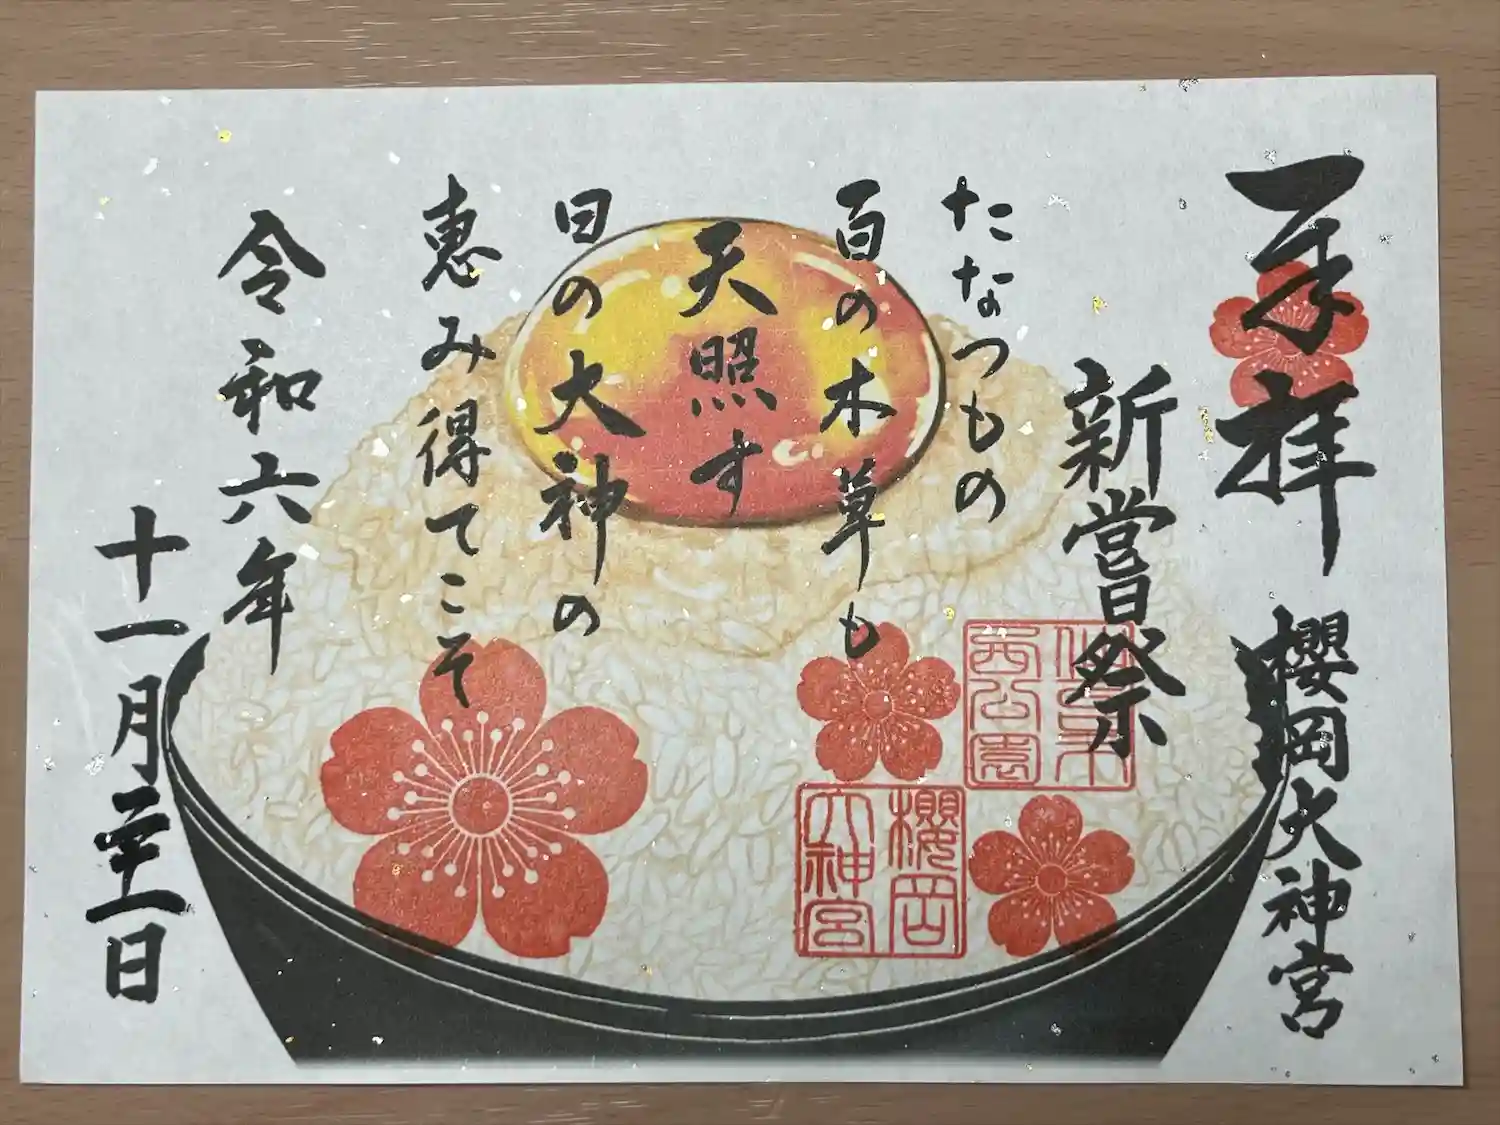 奉拝
櫻岡大神宮
新嘗祭
たなつもの
百の木草も
天照す
日の大神の
恵み得てこそ
令和六年
十一月二十一日
西公園
櫻岡
大神宮